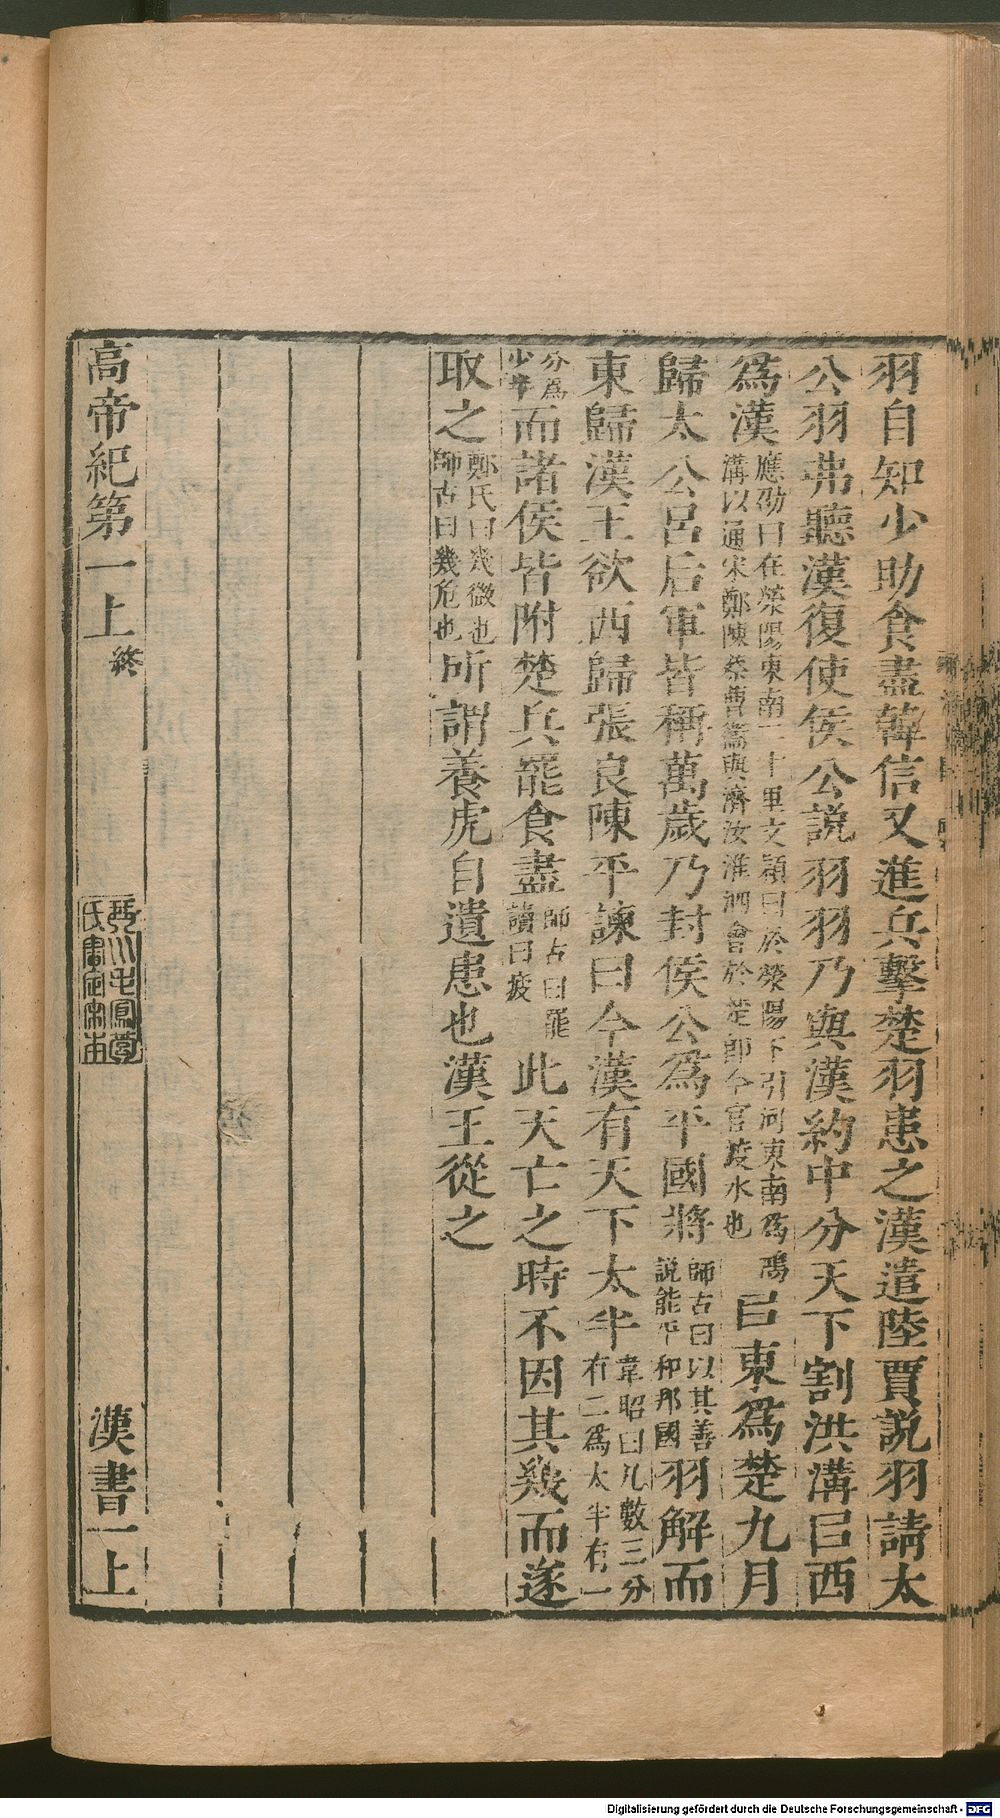 羽自知少助食盡韓信又進兵擊楚羽患之漢遣陸賈說羽請太
公羽弗聽漢復使侯公說羽羽乃與漢約中分天下割洪溝㠯西
爲漢應劭曰在滎陽東南二十里文穎曰於滎陽下引河東南爲鴻溝以通宋鄭陳蔡曹衞與濟汝淮泗會於楚卽今官渡水也㠯東爲楚九月
歸太公呂后軍皆稱萬歲乃封侯公爲平國將師古曰以其善說能平和邦國羽解而
東歸漢王欲西歸張良陳平諫曰今漢有天下太半韋昭曰凡數三分有二爲太半有一
分爲少半而諸侯皆附楚兵罷食盡師古曰罷讀曰疲此天亡之時不因其幾而遂
取之鄭氏曰幾微也師古曰幾危也所謂養虎自遺患也漢王從之
高帝紀第一上終
琴川毛鳳苞氏審定宋本
漢書一上
Digitalisierung gefördert durch die Deutsche Forschungsgemeinschaft - DFG